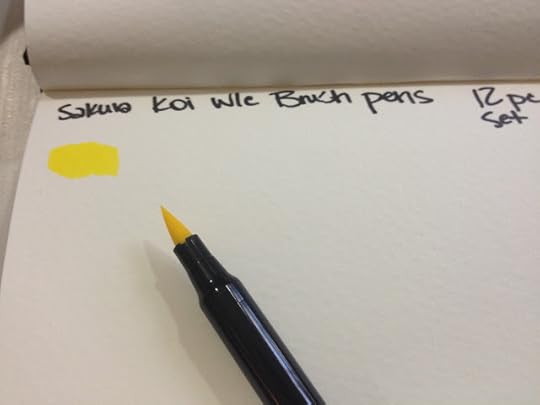 Sakura Koi w/c Brush pens 12 pc
set